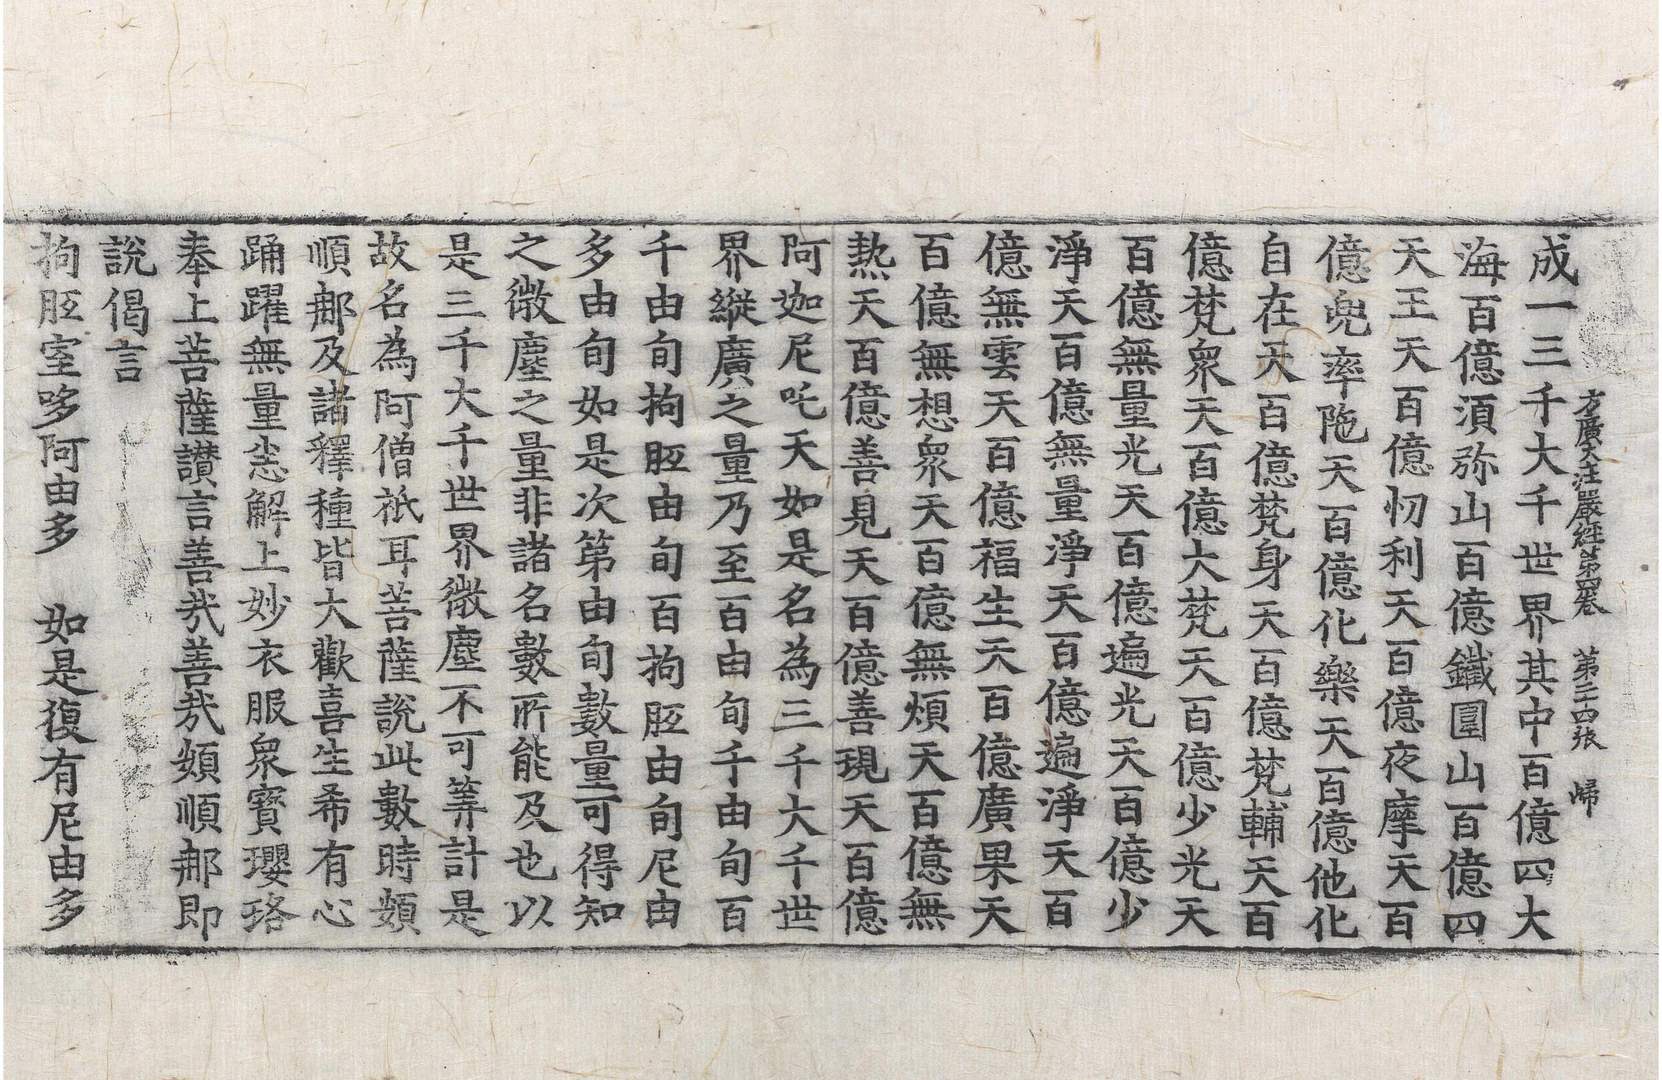 方廣大莊嚴經第四卷 第二四張 歸
成一三千大千世界其中百億四大
海百億須弥山百億鐵圍山百億四
天王天百億忉利天百億夜摩天百
億兜率陁天百億化樂天百億他化
自在天百億梵身天百億梵輔天百
億梵衆天百億大梵天百億少光天
百億無量光天百億遍光天百億少
淨天百億無量淨天百億遍淨天百
億無雲天百億福生天百億廣果天
百億無想衆天百億無煩天百億無
熱天百億善見天百億善現天百億
阿迦尼吒天如是名為三千大千世
界縱廣之量乃至百由旬千由旬百
千由旬拘胝由旬百拘胝由旬尼由
多由旬如是次第由旬數量可得知
之微塵之量非諸名數所能及也以
是三千大千世界微塵不可筭計是
故名為阿僧祇耳菩薩說此數時頞
順那及諸釋種皆大歡喜生希有心
踊躍無量悉解上妙衣服衆寶瓔珞
奉上菩薩讃言善哉善哉頞順那即
說偈言
拘胝室哆阿由多 如是復有尼由多